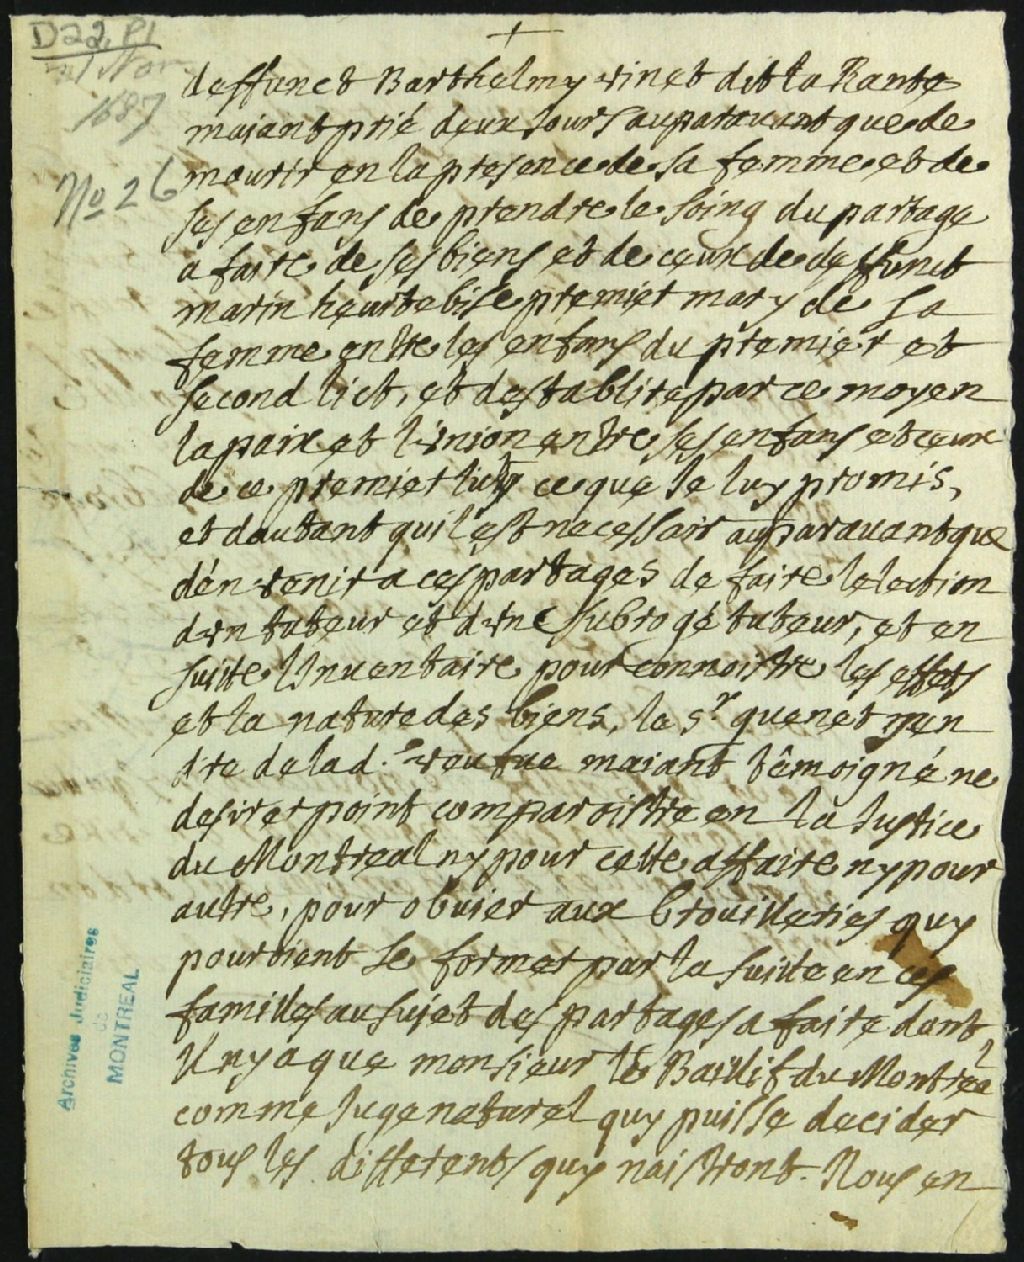 D22, P1
21 Nov
1687
No 26
+
deffunct Barthelmy vinet dit la Rante
maiant prié deux Jours auparauant que de
mourir en la presence de sa femme et de
ses enfans de prendre le soing du partage
a faire de ses biens et de ceux de deffunct
marin heurtebise premier mary de sa
femme entre les enfans du premier et
second lict, et d'establir par ce moyen
la paix et l'vnion entre ses enfans et ceux
de ce premier lict ce que Je luy promis,
et dautant qu'il est necessair auparauant que
d'en venir a ces partages de faire lelection
d'vn tuteur et d'vn subrogé tuteur, et en
suitte l'Inuentaire pour connoistre les effets
et la nature des biens, le Sr quenet gen
dre de lad. veufue maiant têmoigné ne
desirer point comparoistre en la Justice
du Montreal ny pour cette affaire ny pour
autre, pour obuier aux brouilleries quy
pouroient se former par la suitte en ces
familles au sujet des partages a faire dont
Il n'y a que monsieur le Baillif du Montreal
comme Juge naturel quy puisse decider
tous les differents quy naistront. Nous en
Archives Judiciaires
de
MONTREAL